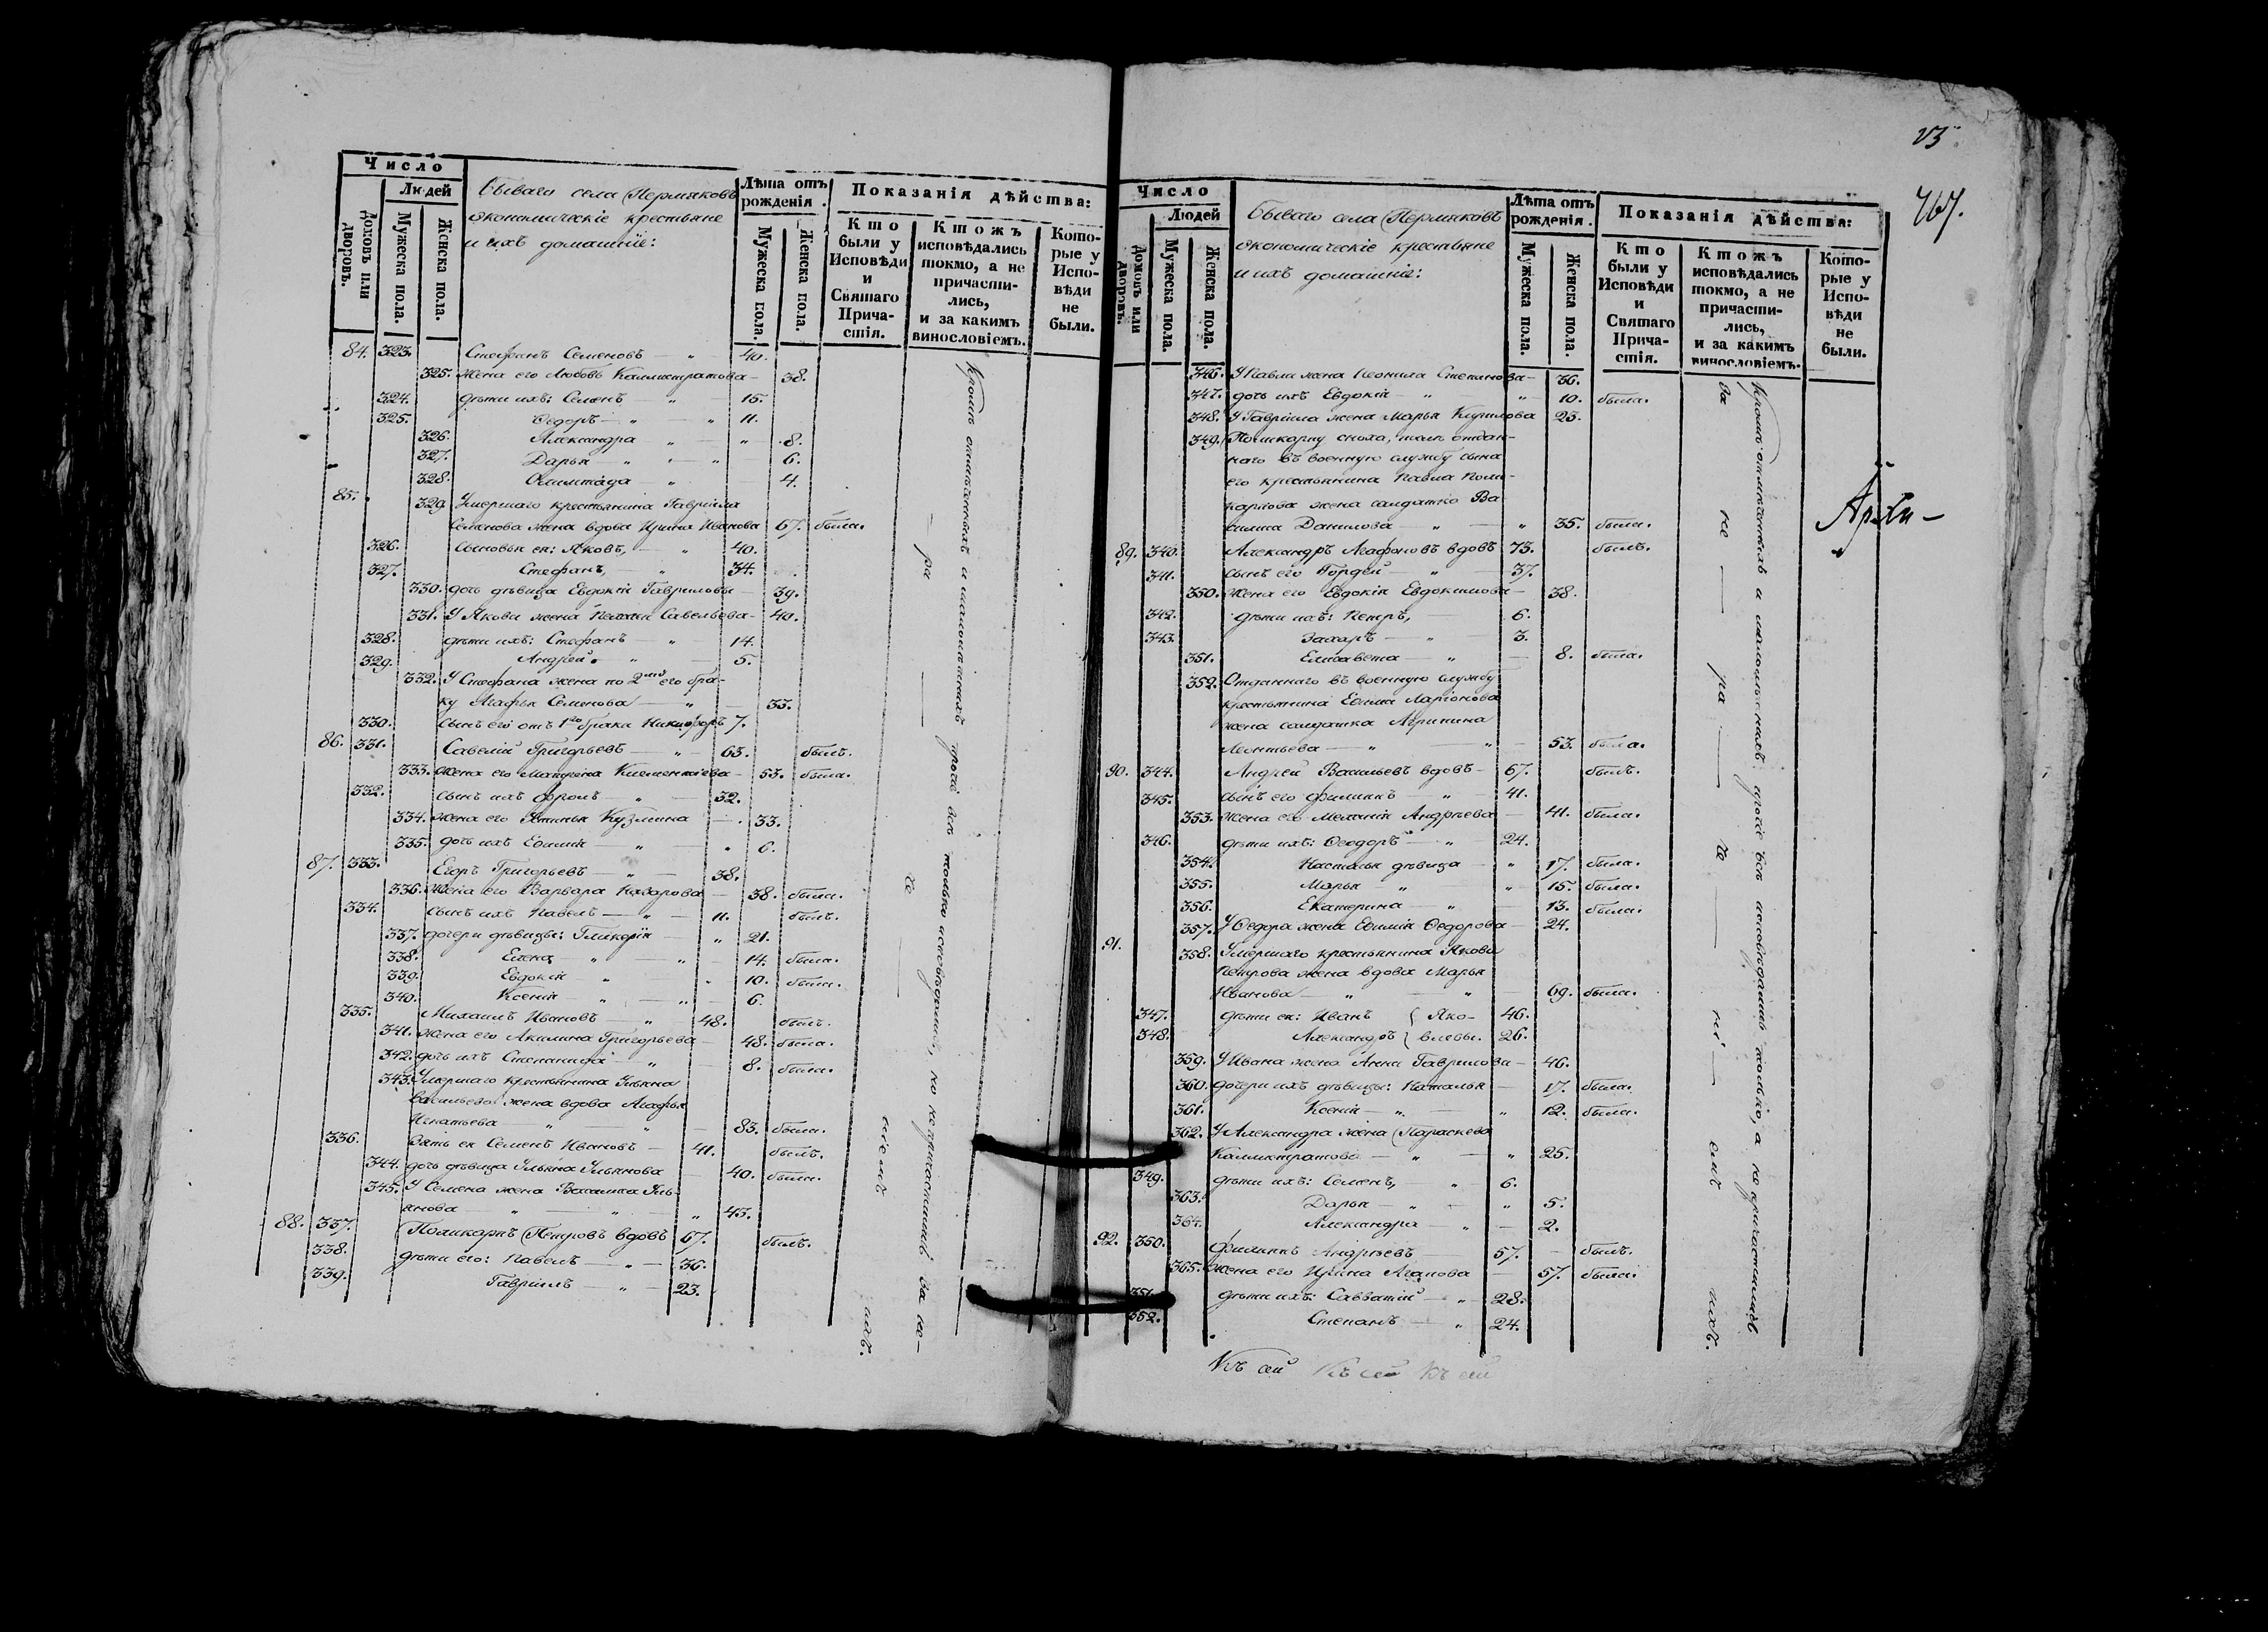 Число
Людей
домовъ или дворовъ.
Мужеска пола.
Женска пола.
Бываго села Пермяковъ
экономическіе крестьяне
и ихъ домашніе:
Лѣта отъ рожденія.
Мужеска пола.
Женска пола.
Показанія дѣйства:
Кто были у Исповѣди и Святаго Прича-стія.
Ктожъ исповѣдались токмо, а не причасти-лись, и за какимъ винословіемъ.
Кото-рые у Испо-вѣди не были.
84. 323. Стефанъ Семеновъ — „ 40.
325. жена его Любовь Каллистратова — 38.
324. дѣти ихъ: Семенъ — „ 15.
325. Ѳедоръ — „ „ 11.
326. Александра „ „ 8.
327. Дарья — „ — „ 6.
328. Олимпіада — „ 4.
85. 329. Умершаго крестьянина Гавріила
Семенова жена вдова Ирина Иванова 67. была.
326. сыновья ея: Яковъ, — „ 40.
327. Стефанъ, — „ 34.
330. дочь дѣвица Евдокія Гаврилова — 39.
331. У Якова жена Пелагія Савельева — 40.
328. дѣти ихъ: Стефанъ — „ 14.
329. Андрей — „ 5.
332. У Стефана жена по 2му его бра-
ку Агафья Семенова — „ 33.
330. сынъ его отъ 1го брака Никифоръ 7.
86. 331. Савелій Григорьевъ — „ 63. былъ.
333. жена его Матрена Клементіева — 53. была.
332. сынъ ихъ Фролъ — „ 32.
334. жена его Устинья Кузмина — 33.
335. дочь ихъ Евѳимія — „ „ 6.
87. 333. Егоръ Григорьевъ — „ 38.
336. жена его Варвара Назарова — 38. была.
334. сынъ ихъ Павелъ — „ 11. былъ.
337. дочери дѣвицы: Гликерія — „ 21.
338. Елена — „ „ 14. была.
339. Евдокія — „ 10. была.
340. Ксенія — „ — „ 6.
335. Михаилъ Ивановъ — „ 48. былъ.
341. жена его Акилина Григорьева — 48. была.
342. дочь ихъ Степанида — „ 8. была.
343. Умершаго крестьянина Ульяна
Васильева жена вдова Агафья
Игнатьева „ „ 83. была.
336. зять ея Семенъ Ивановъ — 41. былъ.
344. дочь дѣвица Ульяна Ульянова 40. была.
345. У Семена жена Василиса Уль-
янова — „ — „ „ 43.
88. 337. Поликарпъ Петровъ вдовъ 67. былъ.
338. дѣти его: Павелъ — „ 36.
339. Гавріилъ — „ 23.
Кромѣ отмѣченныхъ и малолѣтнихъ прочіе всѣ только исповѣдались, но не причастились за не-
ра — че — ніемъ ихъ.
23
467.
Число
Людей
домовъ или дворовъ.
Мужеска пола.
Женска пола.
Бываго села Пермяковъ
экономическіе крестьяне
и ихъ домашніе:
Лѣта отъ рожденія.
Мужеска пола.
Женска пола.
Показанія дѣйства:
Кто были у Исповѣди и Святаго Прича-стія.
Ктожъ исповѣдались токмо, а не причасти-лись, и за какимъ винословіемъ.
Кото-рые у Испо-вѣди не были.
346. У Павла жена Неонила Степанова — 36.
347. дочь ихъ Евдокія — „ „ 10. была.
348. У Гавріила жена Марья Кирилова 23.
349. Поликарпу сноха, отдан-
наго въ военную службу сына
его крестьянина Павла Поли-
карпова жена солдатка Ва-
силиса Данилова — „ „ 35. была.
89. 340. Александръ Агафоновъ вдовъ 73. былъ.
341. сынъ его Гордей — „ 37.
350. жена его Евдокія Евдокимова — 38.
342. дѣти ихъ: Петръ, — 6.
343. Захаръ — „ 3.
351. Елисавета — „ 8. была.
352. Отданнаго въ военную службу
крестьянина Евѳимія Ларіонова
жена солдатка Агрипина
Леонтьева — „ „ 53. была.
90. 344. Андрей Васильевъ вдовъ — 67. былъ.
345. сынъ его Филиппъ — „ 41.
353. жена его Меланія Андреева — 41. была.
346. дѣти ихъ: Ѳеодоръ — „ 24.
354. Настасья дѣвица — „ 17. была.
355. Марья „ „ 15. была.
356. Екатерина — „ 13. была.
357. У Ѳедора жена Евѳимія Ѳедорова — 24.
91. 358. Умершаго крестьянина Якова
Петрова жена вдова Марья
Иванова — „ „ 69. была.
347. дѣти ея: Иванъ { Яко- 46.
348. Александръ } влевы. 26.
359. У Ивана жена Анна Гаврилова — 46.
360. дочери ихъ дѣвицы: Наталья — 17. была.
361. Ксенія — „ „ 12. была.
362. У Александра жена Параскева
Каллистратова — „ „ 25.
349. дѣти ихъ: Семенъ, — „ 6.
363. Дарья — „ „ 5.
364. Александра — „ 2.
92. 350. Филиппъ Андреевъ — 57. былъ.
365. жена его Ирина Агапова — 57. была.
351. дѣти ихъ: Савватій — „ 28.
352. Степанъ — „ 24.
Кромѣ отмѣченныхъ и малолѣтнихъ прочіе всѣ исповѣдались только, а не причастились
за не — ра — че — ні — емъ ихъ.
Къ сей Къ сей Къ сей